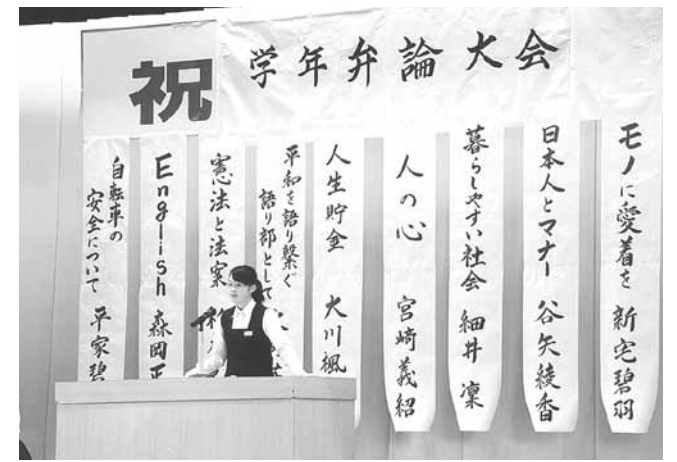 祝
学年弁論大会
モノに愛着を 新宅碧羽
日本人とマナー 谷矢綾香
暮らしやすい社会 細井凜
人の心 宮崎義紹
人生貯金 大川楓
平和を語り繋ぐ
語り部として
憲法と法案
English 森岡正
自転車の
安全について 平家碧